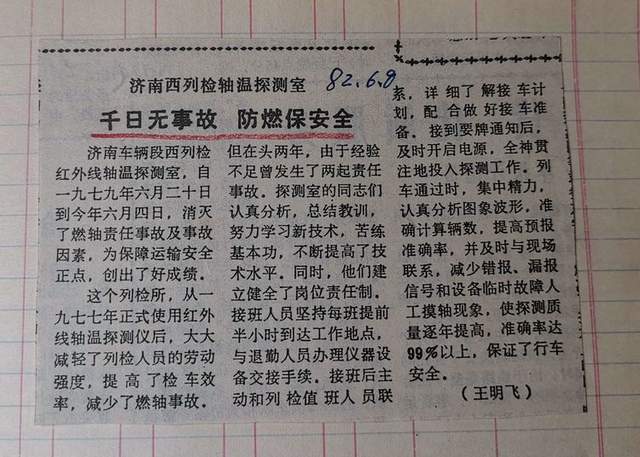 济南西列检轴温探测室
82.6.8
千日无事故 防燃保安全
济南车辆段西列检
红外线轴温探测室,自
一九七九年六月二十日
到今年六月四日,消灭
了燃轴责任事故及事故
因素,为保障运输安全
正点,创出了好成绩。
这个列检所,从一
九七七年正式使用红外
线轴温探测仪后,大大
减轻了列检人员的劳动
强度,提高了检车效
率,减少了燃轴事故。
但在头两年,由于经验
不足曾发生了两起责任
事故。探测室的同志们
认真分析,总结教训,
努力学习新技术,苦练
基本功,不断提高了技
术水平。同时,他们建
立健全了岗位责任制。
接班人员坚持每班提前
半小时到达工作地点,
与退勤人员办理仪器设
备交接手续。接班后主
动和列检值班人员联
系,详细了解接车计
划,配合做好接车准
备。接到要牌通知后,
及时开启电源,全神贯
注地投入探测工作。列
车通过时,集中精力,
认真分析图象波形,准
确计算辆数,提高预报
准确率,并及时与现场
联系,减少错报、漏报
信号和设备临时故障人
工摸轴现象,使探测质
量逐年提高,准确率达
99%以上,保证了行车
安全。
(王明飞)